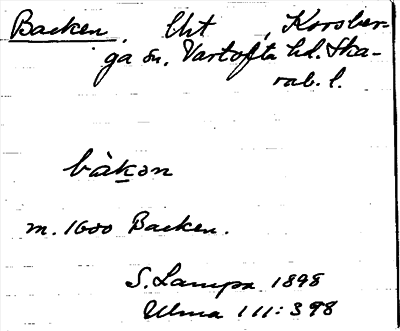 Backen, Utj, Korsber-
ga sn. Vartofta hd. Ska-
rab. l.
bàkən
m. 1600 Backen.
S. Lampa 1898
Ulma 111:398